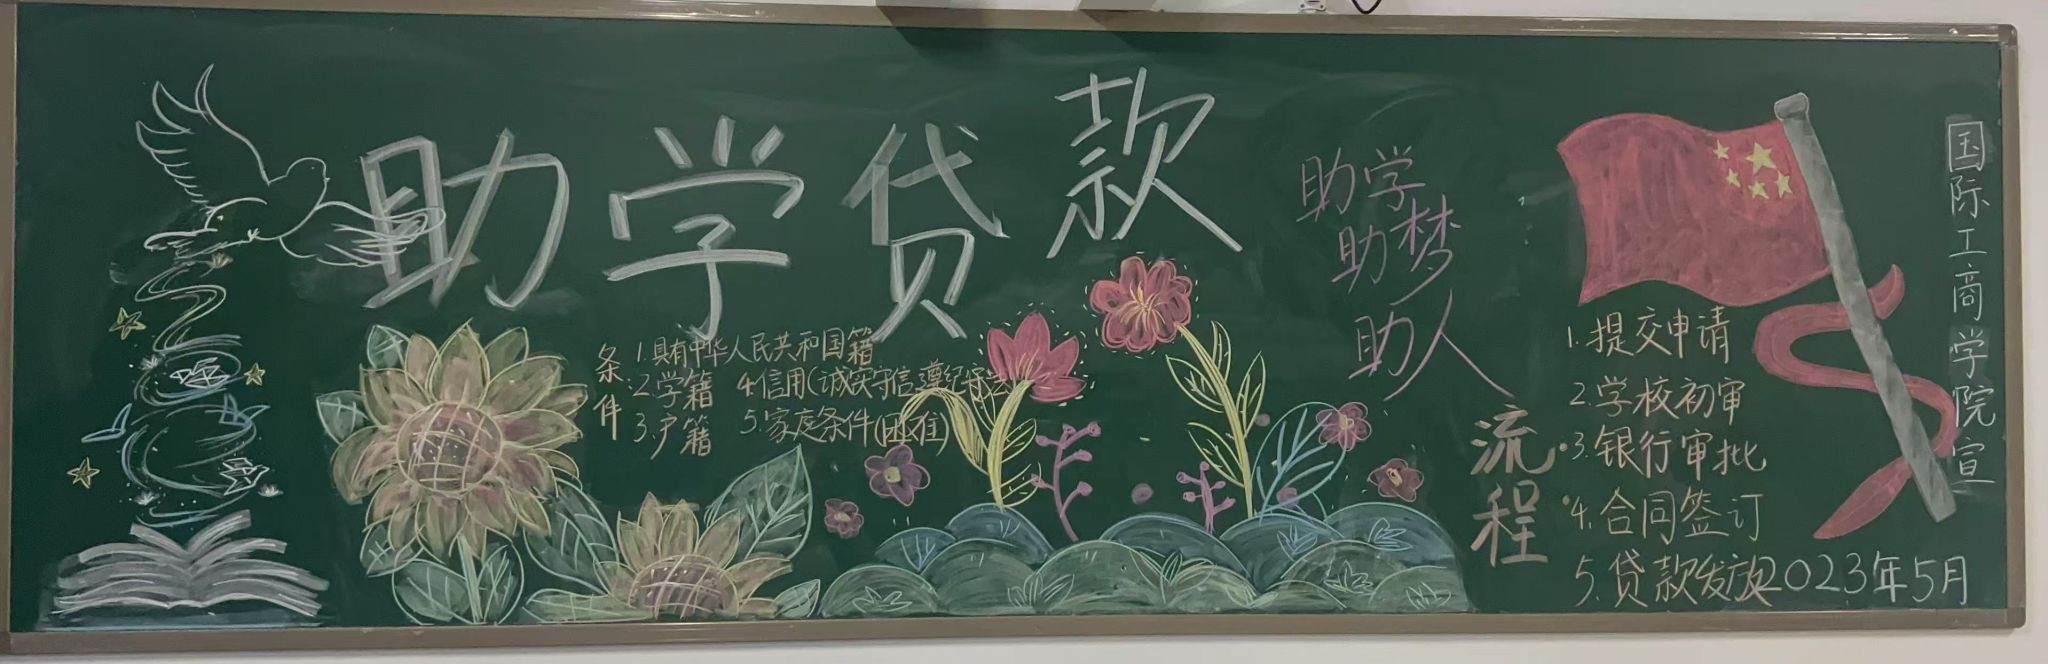 助学贷款
条件
1.具有中华人民共和国籍
2.学籍
3.户籍
4.信用(诚实守信遵纪守法
5.家庭条件(困难)
助学
助梦
助人
流程
1.提交申请
2.学校初审
3.银行审批
4.合同签订
5.贷款发放
2023年5月
国际工商学院宣